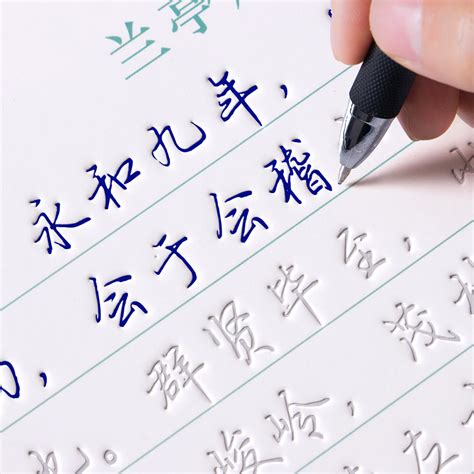 兰亭
永和九年，
，会于会稽
也。群贤毕至，
峻岭，茂